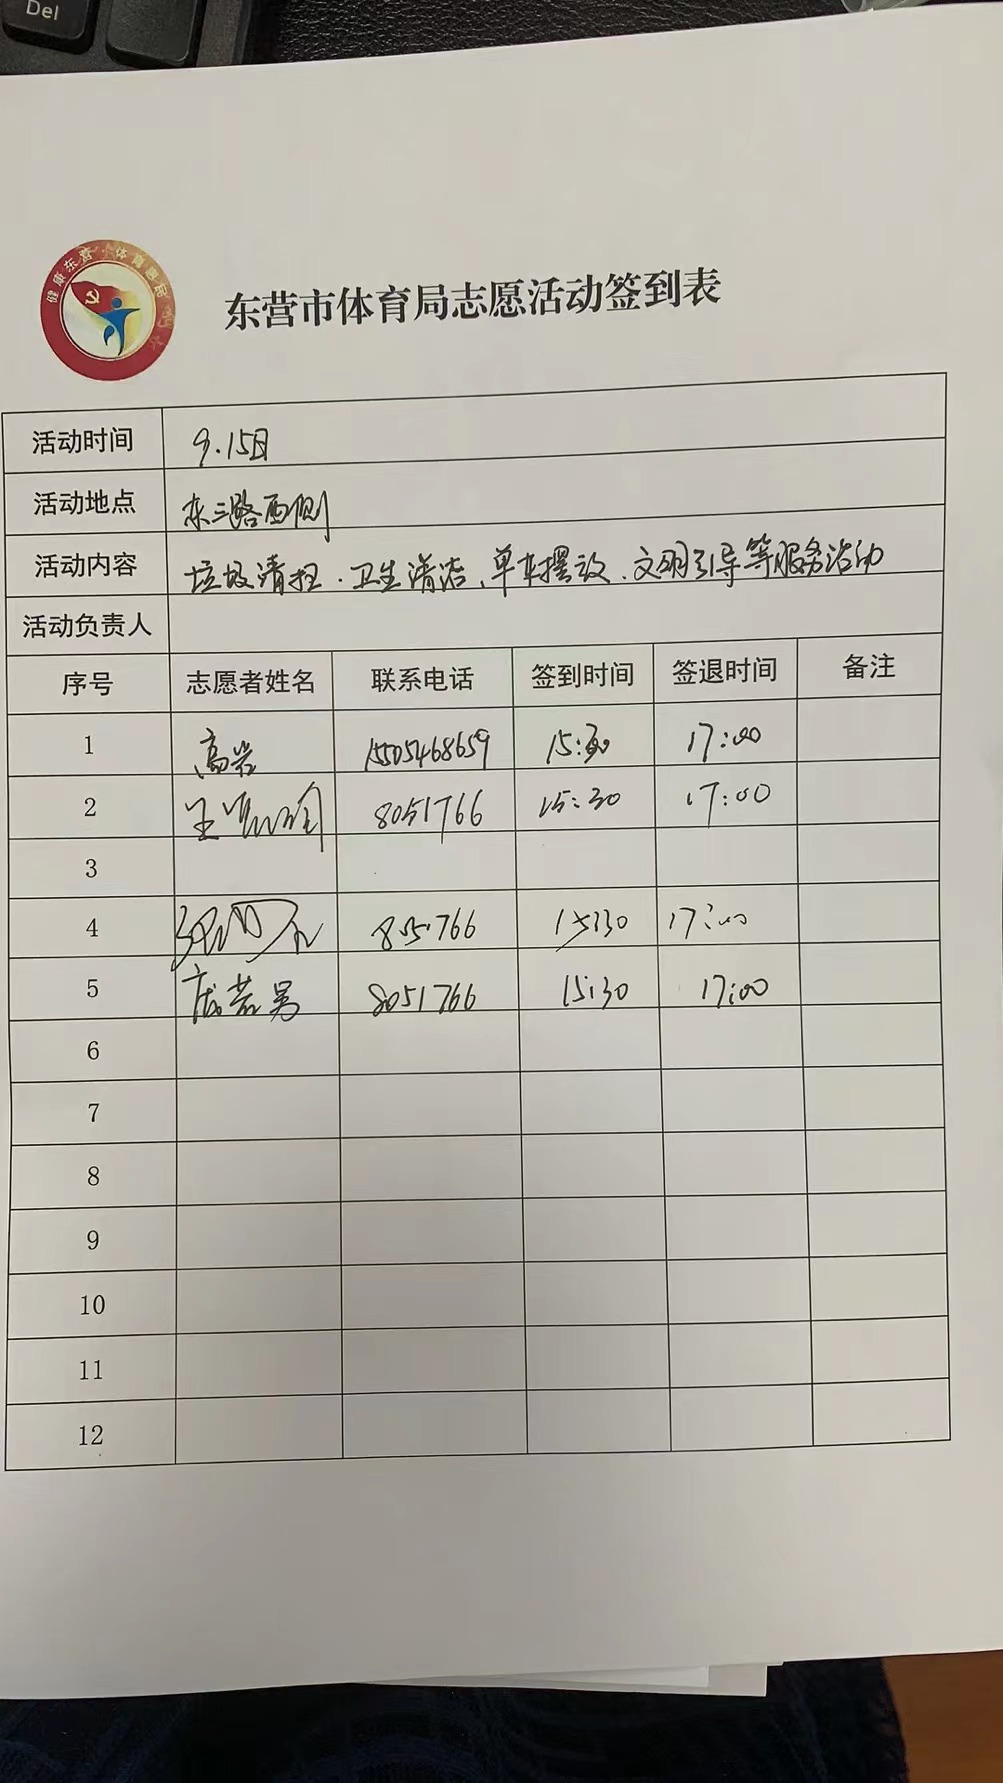 Del
健康东营 体育惠民
东营市体育局志愿活动签到表
活动时间 9.15日
活动地点 东三路西侧
活动内容 垃圾清扫、卫生清洁、单车摆放、文明引导等服务活动
活动负责人
序号 志愿者姓名 联系电话 签到时间 签退时间 备注
1 高岩 15505468659 15:30 17:00
2 王 8051766 15:30 17:00
3
4 8051766 15:30 17:00
5 庞若男 8051766 15:30 17:00
6
7
8
9
10
11
12